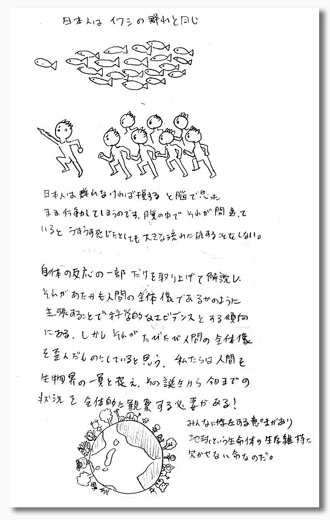 日本人は イワシの群れと同じ
日本人は群れなければ損すると脳で思った
まま行動してしまうのです。腹の中でそれが間違って
いるとうすうす感じたとしても大きな流れに抗することをしない。
身体の反応の一部だけを取り上げて解説し、
それがあたかも人間の全体像であるかのように
主張することで科学的なエビデンスとする傾向
にある。しかしそれがたびたび人間の全体像
を歪んだものとしていると思う。私たちは人間も
生物界の一員と捉え、その誕生から今までの
状況を全体的に観察する必要がある!
みんなに存在する意味があり
地球という生命体の生存維持に
欠かせない命なのだ。